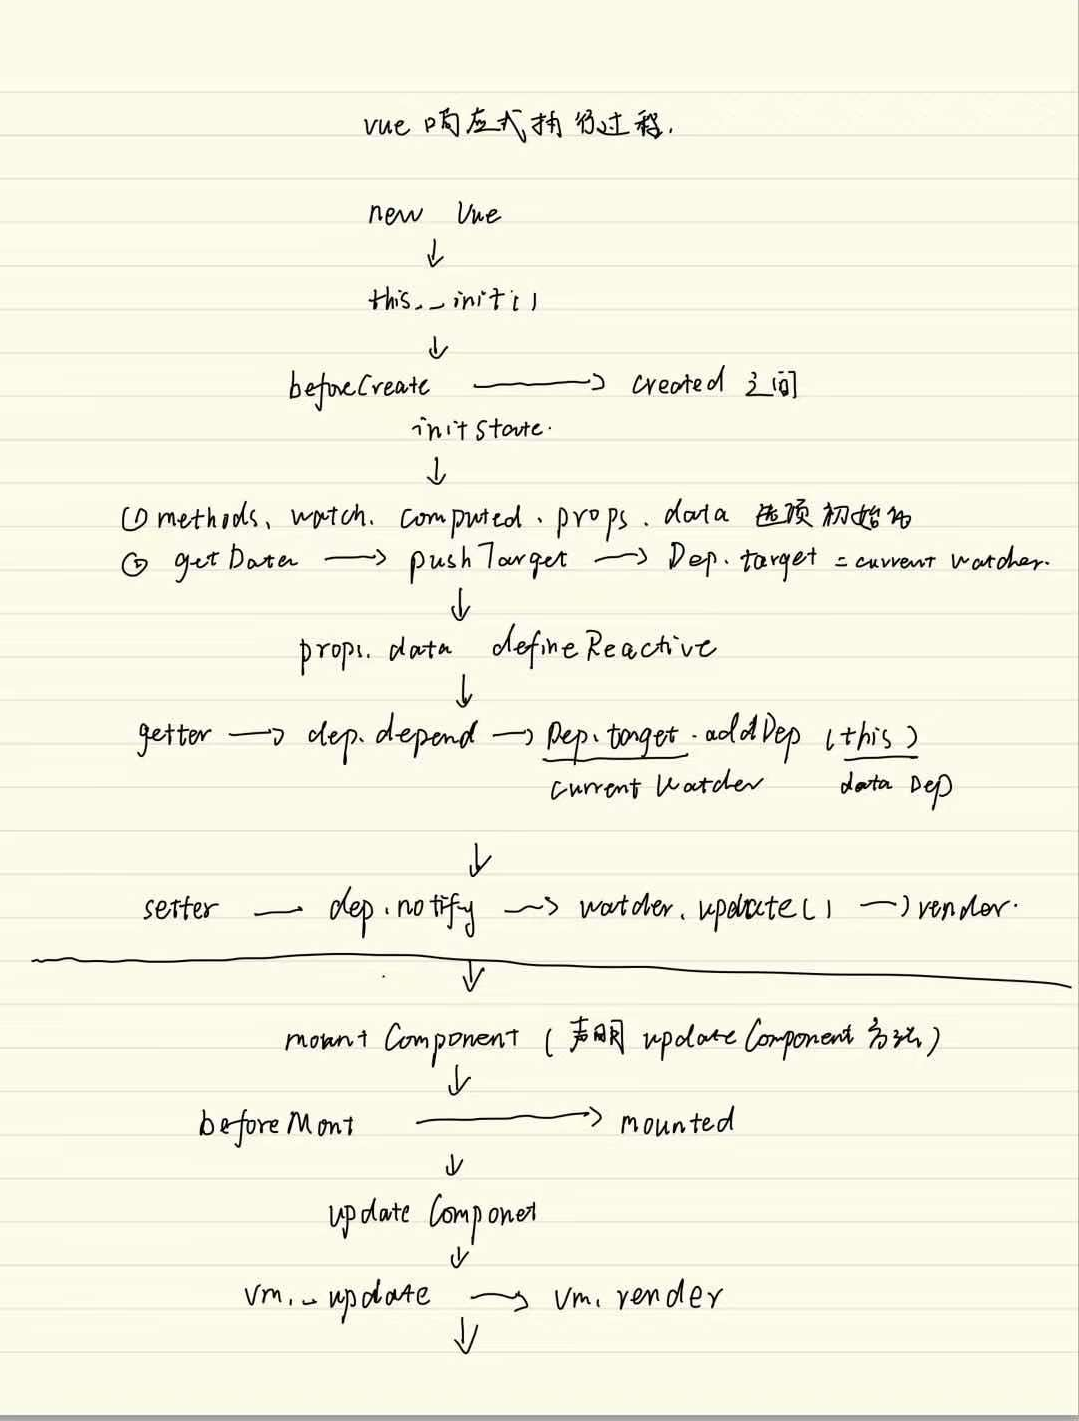 vue 响应式执行过程.
new Vue
↓
this._init()
↓
beforeCreate → created 之间
initState.
↓
① methods、watch、computed、props、data 选项初始化
② getData → pushTarget → Dep.target = current watcher.
↓
props. data defineReactive
↓
getter → dep.depend → Dep.target.addDep (this)
current Watcher data Dep
↓
setter — dep.notify → watcher.update() → render.
↓
mount Component ( 声明 updateComponent 方法 )
↓
beforeMont → mounted
↓
update Componet
↓
vm._update → vm.render
↓